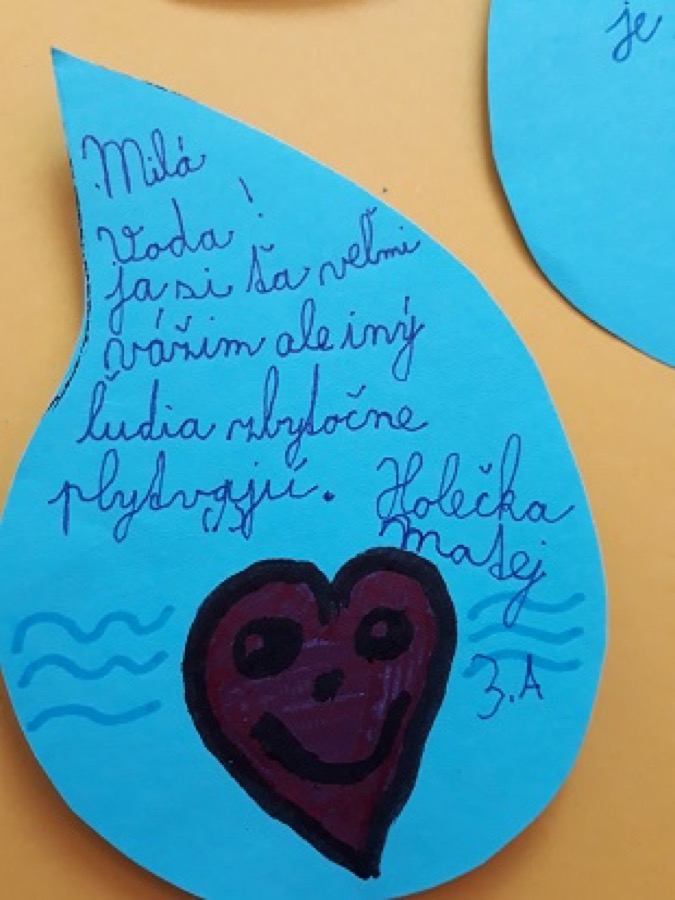 Milá
Voda!
ja si ťa veľmi
vážim ale iný
ľudia zbytočne
plytvajú. Holečka
Matej
3.A
je